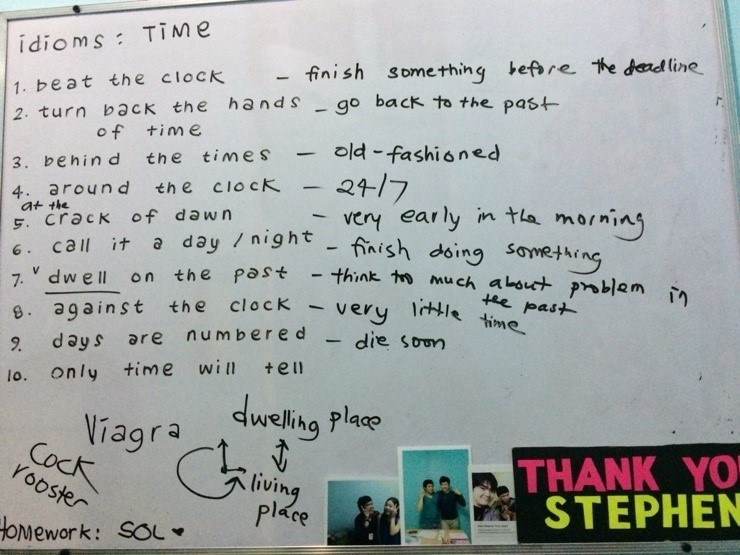 idioms: TIME
1. beat the clock - finish something before the deadline
2. turn back the hands - go back to the past
of time
3. behind the times - old-fashioned
4. around the clock - 24/7
at the
5. crack of dawn - very early in the morning
6. call it a day / night - finish doing something
7. v dwell on the past - think too much about problem in
the past
8. against the clock - very little
time
9. days are numbered - die soon
10. only time will tell
Viagra
dwelling place
Cock
rooster
living
place
Homework: SOL
THANK YO
STEPHEN